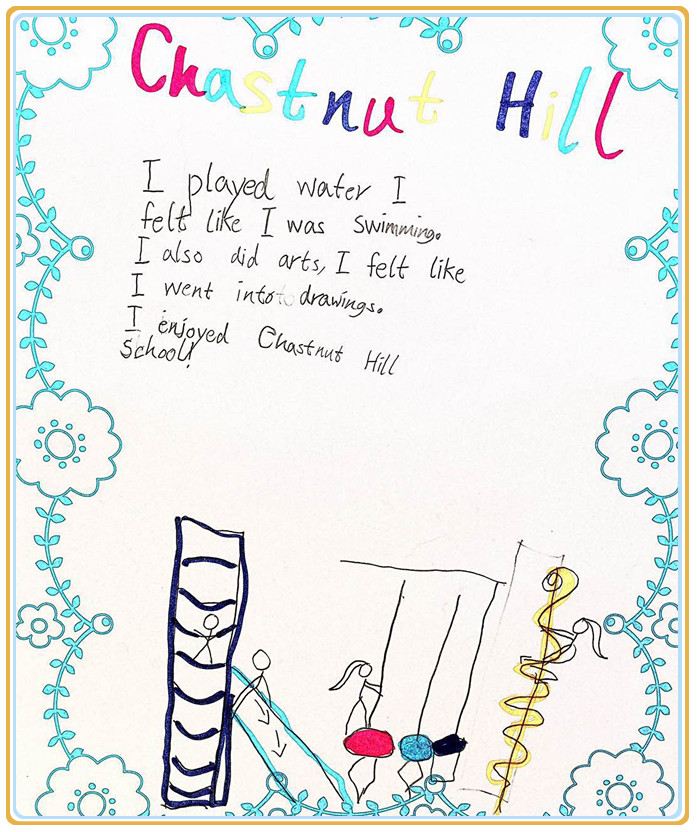 Chastnut Hill
I played water I
felt like I was swimming.
I also did arts, I felt like
I went into drawings.
I enjoyed Chastnut Hill
School!